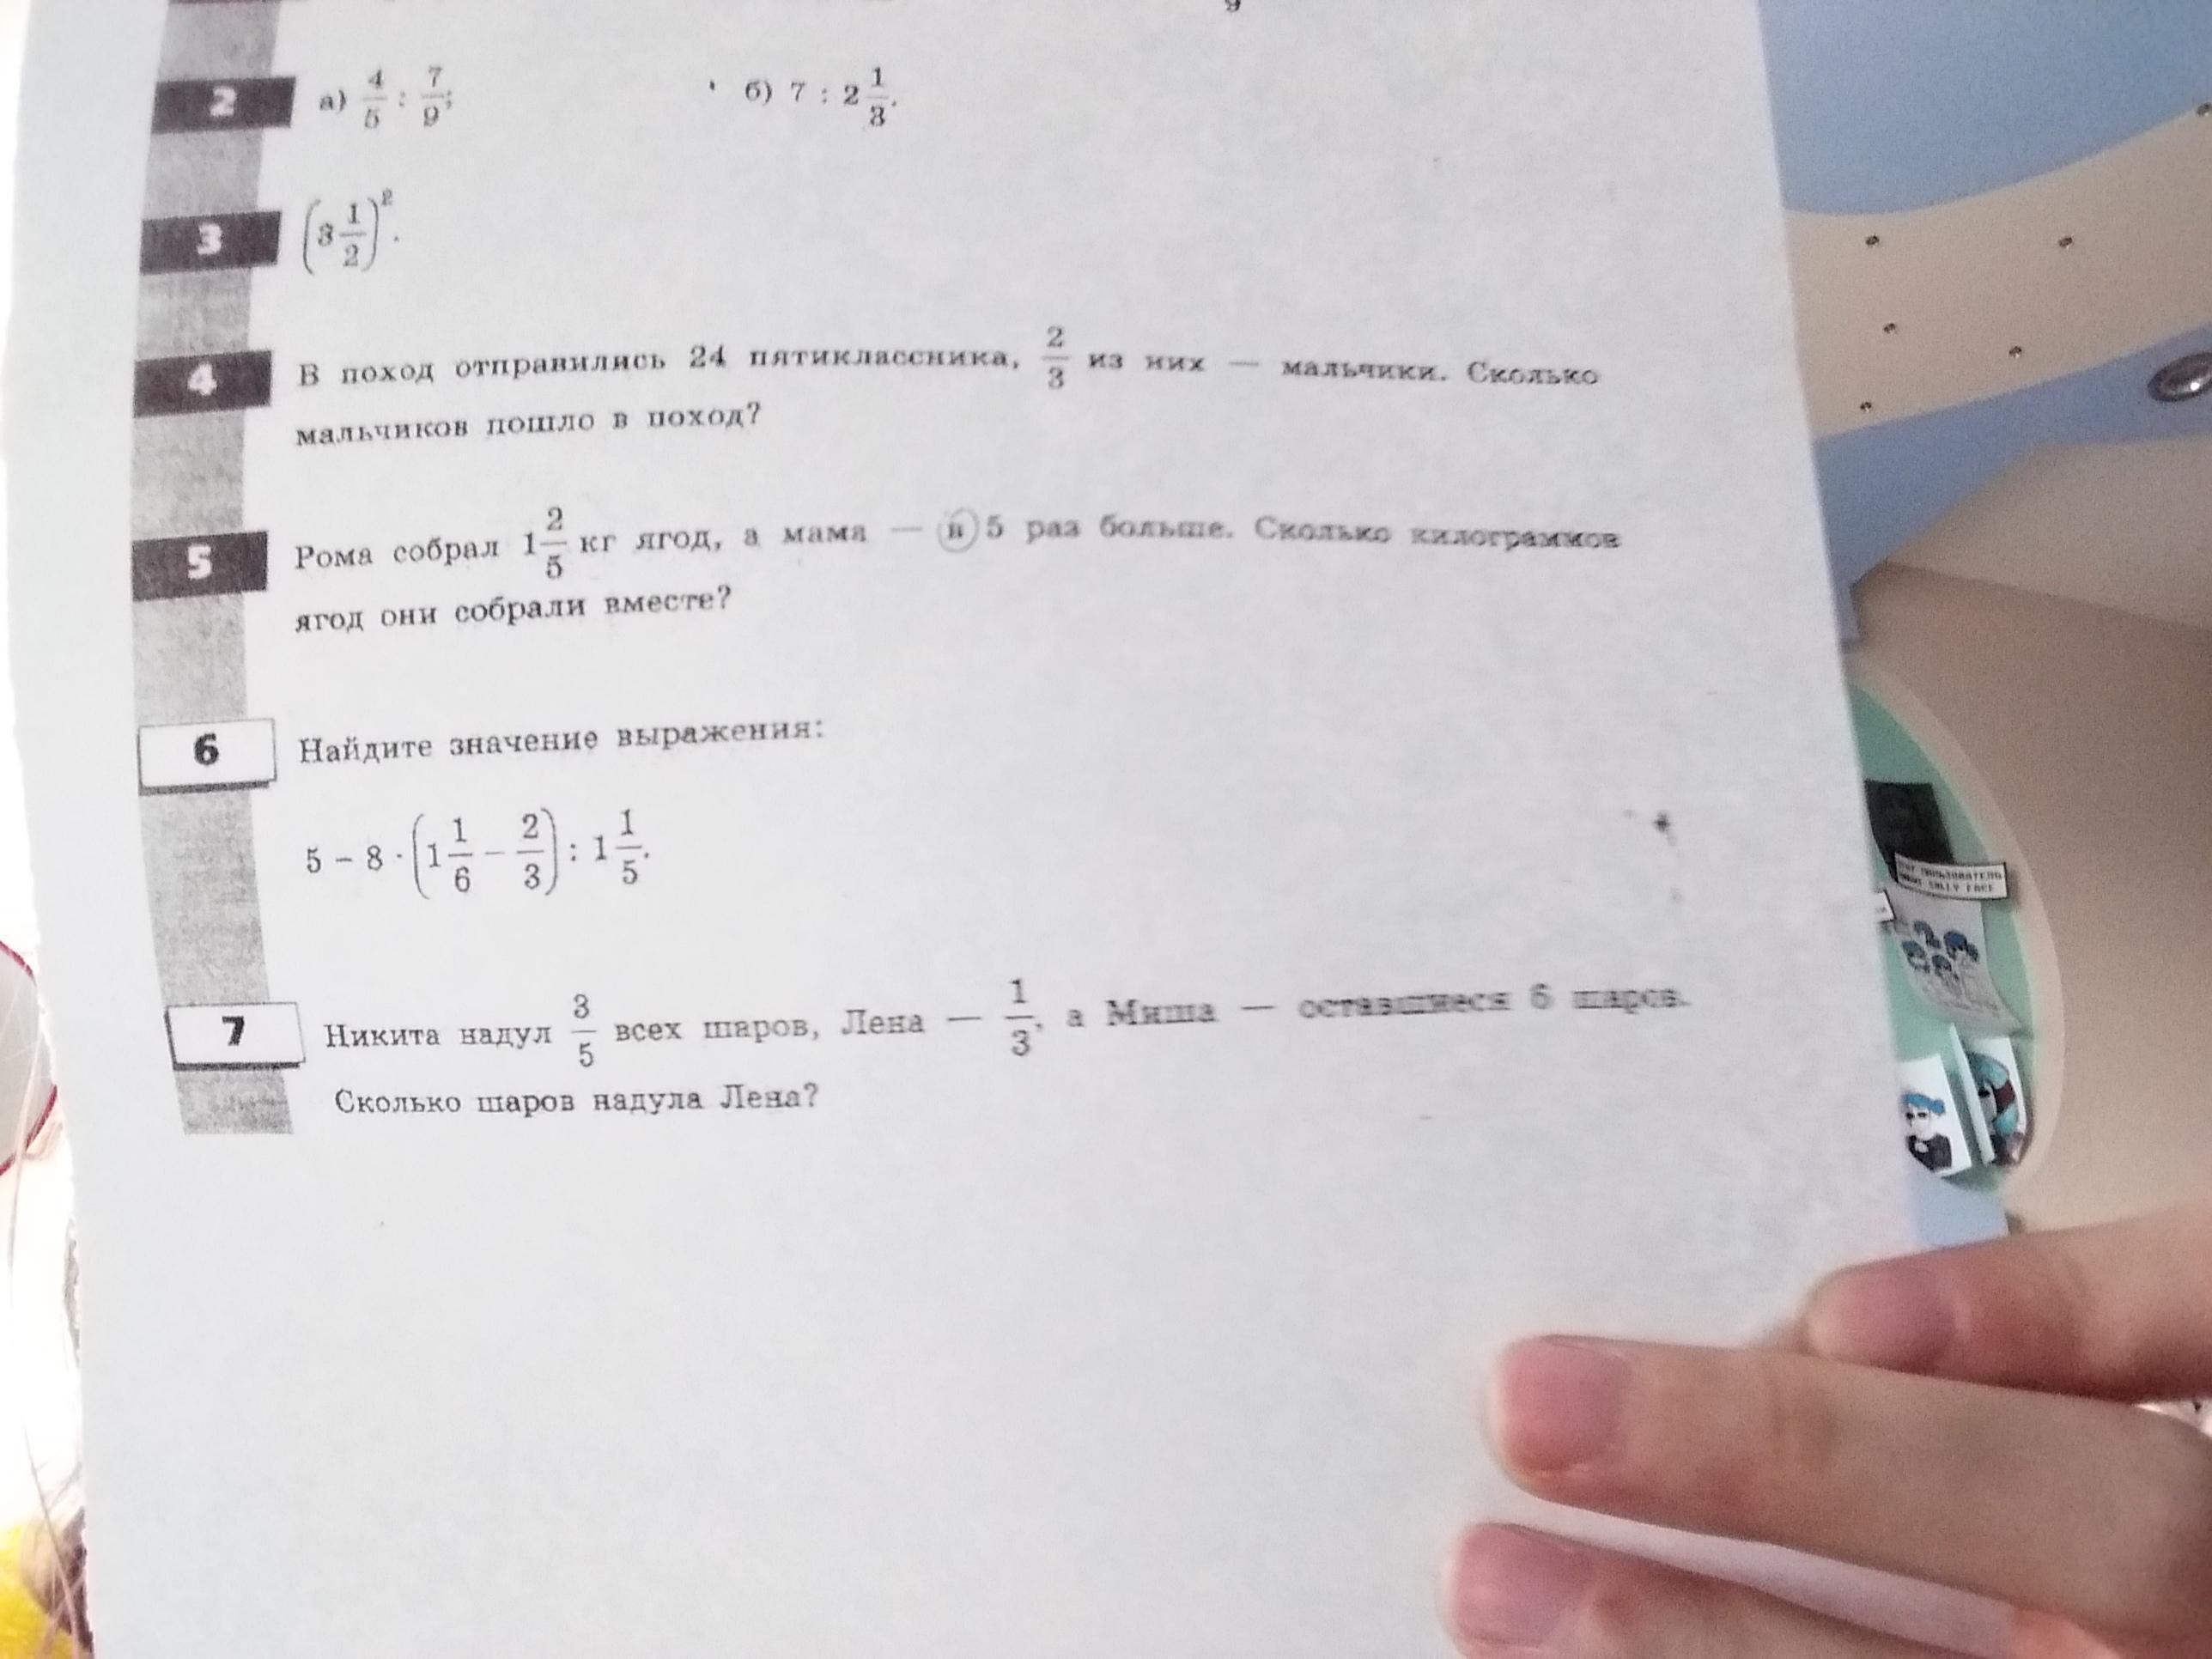 9
2 а) 4/5 : 7/9; б) 7 : 2 1/3.
3 (3 1/2)².
4 В поход отправились 24 пятиклассника, 2/3 из них — мальчики. Сколько
мальчиков пошло в поход?
5 Рома собрал 1 2/5 кг ягод, а мама — в 5 раз больше. Сколько килограммов
ягод они собрали вместе?
6 Найдите значение выражения:
5 − 8 · (1 1/6 − 2/3) : 1 1/5.
7 Никита надул 3/5 всех шаров, Лена — 1/3, а Миша — оставшиеся 6 шаров.
Сколько шаров надула Лена?